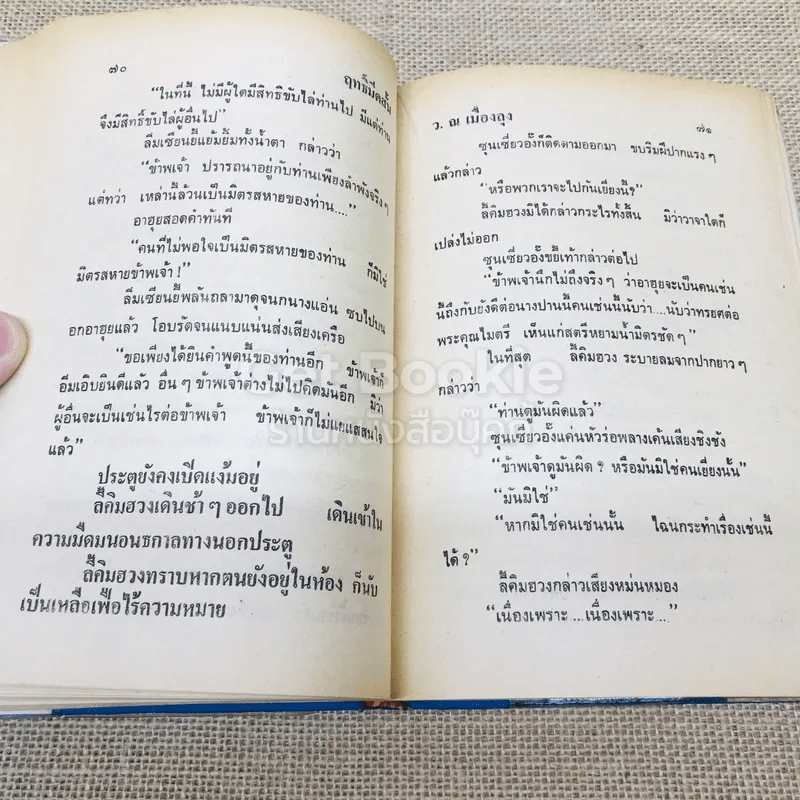 ๗๐
ฤทธิ์มีดสั้น
“ในที่นี้ ไม่มีผู้ใดมีสิทธิขับไล่ท่านไป มีแต่ท่าน
จึงมีสิทธิ์ขับไล่ผู้อื่นไป”
ลิ่มเซียนยี้แย้มยิ้มทั้งน้ำตา กล่าวว่า
“ข้าพเจ้า ปรารถนาอยู่กับท่านเพียงลำพังจริงๆ
แต่ทว่า เหล่านี้ล้วนเป็นมิตรสหายของท่าน....”
อาฮุยสอดคำทันที
“คนที่ไม่พอใจเป็นมิตรสหายของท่าน ก็มิใช่
มิตรสหายข้าพเจ้า!”
ลิ่มเซียนยี้พลันถลามาดุจนกนางแอ่น ซบไปบน
อกอาฮุยแล้ว โอบรัดจนแนบแน่นส่งเสียงเครือ
“ขอเพียงได้ยินคำพูดนี้ของท่านอีก ข้าพเจ้าก็
อิ่มเอิบยินดีแล้ว อื่นๆ ข้าพเจ้าต่างไม่ไปคิดมันอีก มิว่า
ผู้อื่นจะเป็นเช่นไรต่อข้าพเจ้า ข้าพเจ้าก็ไม่แยแสสนใจ
แล้ว”
ประตูยังคงเปิดแง้มอยู่
ลี้คิมฮวงเดินช้าๆ ออกไป เดินเข้าใน
ความมืดมนอนธกาลทางนอกประตู
ลี้คิมฮวงทราบหากตนยังอยู่ในห้อง ก็นับ
เป็นเหลือเฟือไร้ความหมาย
ว. ณ เมืองลุง
๗๑
ซุนเซี่ยวอั้งก็ติดตามออกมา ขบริมฝีปากแรงๆ
แล้วกล่าว
“หรือพวกเราจะไปกันเยี่ยงนี้?”
ลี้คิมฮวงมิได้กล่าวกระไรทั้งสิ้น มิว่าวาจาใดก็
เปล่งไม่ออก
ซุนเซี่ยวอั้งขยี้เท้ากล่าวต่อไป
“ข้าพเจ้านึกไม่ถึงจริงๆ ว่าอาฮุยจะเป็นคนเช่น
นี้ถึงกับยังดีต่อนางปานนี้คนเช่นนี้นับว่า....นับว่าทรยศต่อ
พระคุณไมตรี เห็นแก่สตรีหยามน้ำมิตรชัดๆ”
ในที่สุด ลี้คิมฮวง ระบายลมจากปากยาวๆ
กล่าวว่า
“ท่านดูมันผิดแล้ว”
ซุนเซี่ยวอั้งแค่นหัวร่อพลางเค้นเสียงชิงชัง
“ข้าพเจ้าดูมันผิด? หรือมันมิใช่คนเยี่ยงนั้น”
“มันมิใช่”
“หากมิใช่คนเช่นนั้น ไฉนกระทำเรื่องเช่นนี้
ได้?”
ลี้คิมฮวงกล่าวเสียงหม่นหมอง
“เนื่องเพราะ ...เนื่องเพราะ...”
Get Bookie
ร้านหนังสือบุ๊คกี้